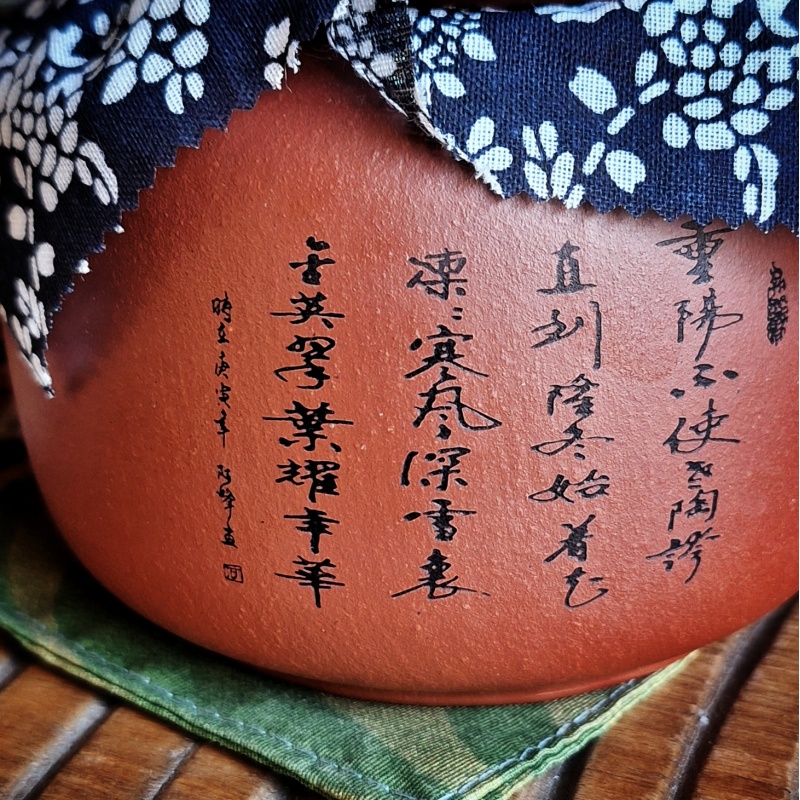 重陽不使老陶誇
直到隆冬始着花
凛々寒风深雪裏
金英翠葉耀年華
時在庚寅年 阿峰